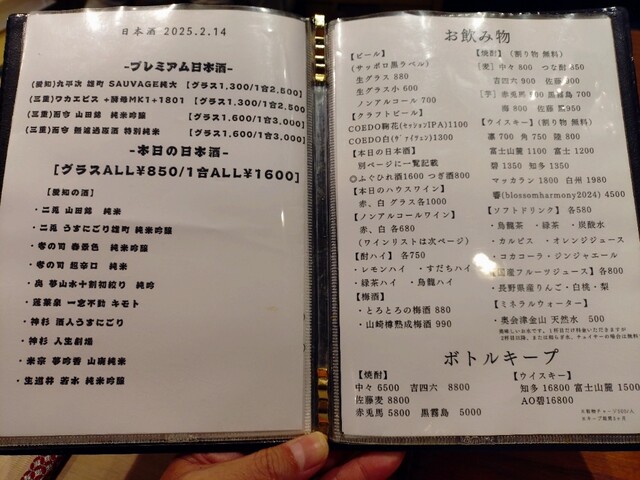 日本酒 2025.2.14
-プレミアム日本酒-
(愛知)九平次 雄町 SAUVAGE純大 【グラス1,300/1合2,500】
(三重)ワカエビス +酵母MK1+1801 【グラス1,300/1合2,500
(三重)而今 山田錦 純米吟醸 【グラス1,600/1合3,000】
(三重)而今 無濾過原酒 特別純米 【グラス1,600/1合3,000】
-本日の日本酒-
[グラスALL¥850/1合ALL¥1600]
【愛知の酒】
・二兎 山田錦 純米
・二兎 うすにごり雄町 純米吟醸
・零の司 春景色 純米吟醸
・零の司 超辛口 純米
・奥 夢山水十割初絞り 純吟
・蓬莱泉 一念不動 キモト
・神杉 酒人うすにごり
・神杉 人生劇場
・米宗 夢吟香 山廃純米
・生道井 若水 純米吟醸
お飲み物
【ビール】
(サッポロ黒ラベル)
生グラス 880
生グラス小 600
ノンアルコール 700
【クラフトビール】
COEDO鞠花(セッションIPA)1100
COEDO白(ヴァイツェン)1300
【本日の日本酒】
別ページに一覧記載
◎ふぐひれ酒1600 つぎ酒800
【本日のハウスワイン】
赤、白 グラス各1000
【ノンアルコールワイン】
赤、白 各680
(ワインリストは次ページ)
【酎ハイ】 各750
・レモンハイ ・すだちハイ
・緑茶ハイ ・烏龍ハイ
【梅酒】
・とろとろの梅酒 880
・山崎樽熟成梅酒 990
【焼酎】 (割り物 無料)
[麦] 中々 800 つな献 450
吉四六 900 佐藤
[芋] 赤兎馬 黒霧島 700
800 佐藤
【ウイスキー】(割り物 無料)
凛 700 角 750 陸 800
富士山麓 1100 富士 1200
碧 1350 知多 1350
マッカラン 1800 白州 1980
響(blossomharmony2024) 4500
【ソフトドリンク】 各580
・烏龍茶 ・緑茶 ・炭酸水
・カルピス ・オレンジジュース
・コカコーラ・ジンジャエール
【国産フルーツジュース】各800
・長野県産りんご・白桃・梨
【ミネラルウォーター】
・奥会津金山 天然水 500
ボトルキープ
【焼酎】
中々 6500 吉四六 8800
佐藤麦 8800
赤兎馬 5800 黒霧島 5000
【ウイスキー】
知多 16800 富士山麓 1500
AO碧16800